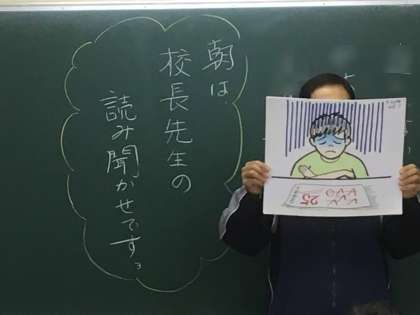 朝は
校長先生の
読み聞かせです。
25